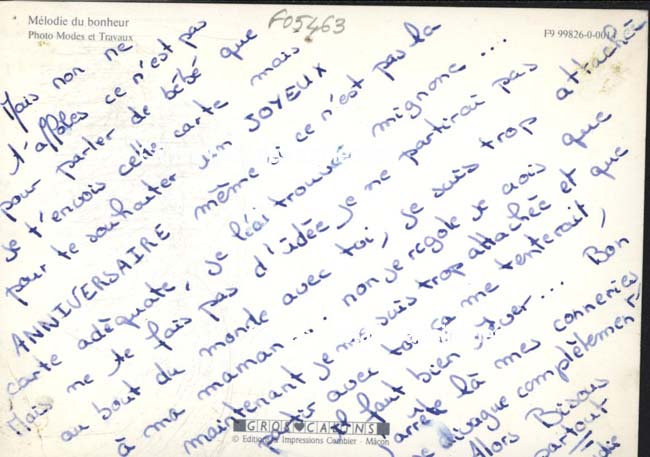 Mélodie du bonheur
Photo Modes et Travaux
F05463
F9 99826-0-0014
Mais non ne
t'affoles ce n'est pas
pour parler de bébé que
je t'envois cette carte mais
pour te souhaiter un JOYEUX
ANNIVERSAIRE même si ce n'est pas la
carte adéquate, je l'ai trouvée mignone ...
Mais ne te fais pas d'idée je ne partirai pas
au bout du monde avec toi, je suis trop attachée
à ma maman ... non je rigole je crois que
maintenant je me suis trop attachée et que
partir avec toi ça me tenterait,
il faut bien rêver ... Bon
j'arrête là mes conneries
je divague complètement
Alors Bisous
partout
GROS CALINS
© Editions & Impressions Combier - Mâcon